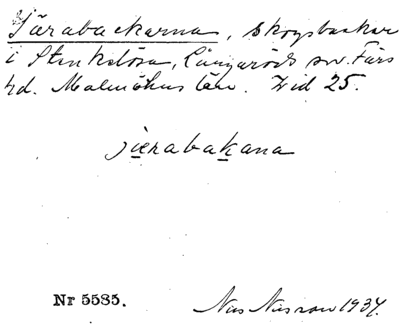 Järabackarna, skogsbackar
i Stenkilösa, Långaröds sn. Färs
hd. Malmöhus län. Z id 25.
jærabakana
Nr 5585.
Nils Nilsson 1934.